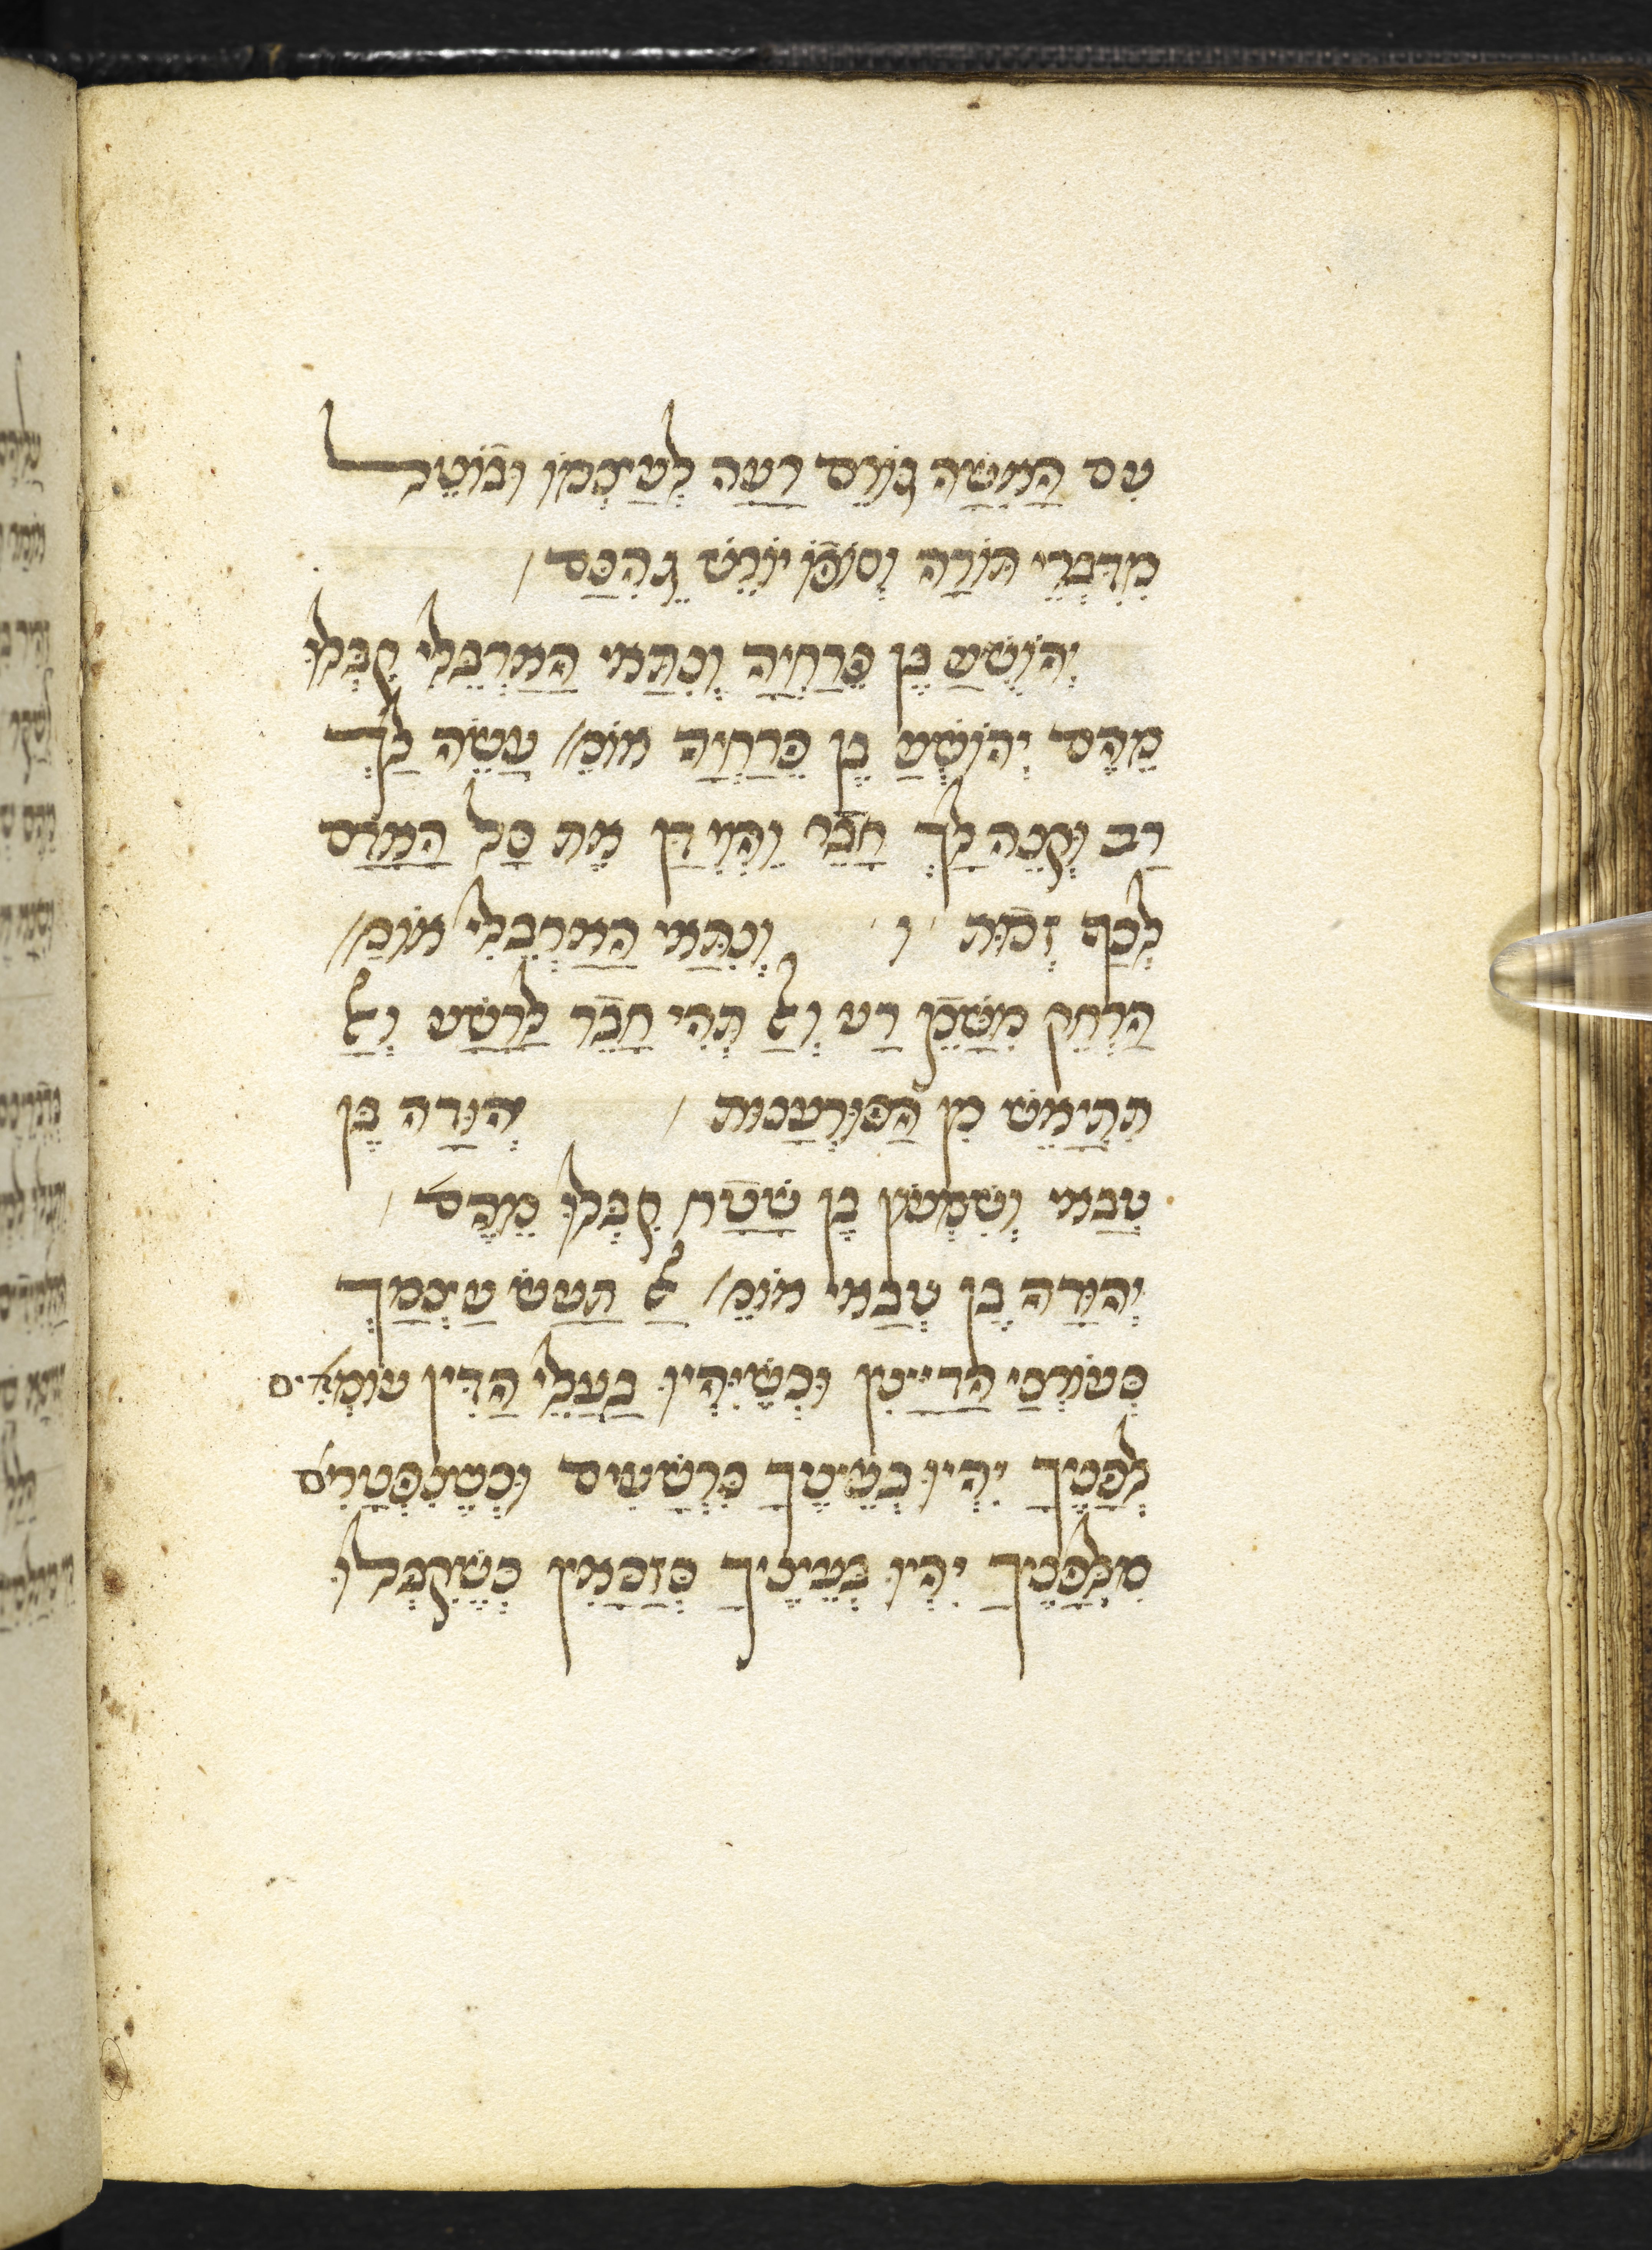 עִם הָאִשָּׁה גּוֹרֵם רָעָה לְעַצְמוֹ וּבוֹטֵל
מִדִּבְרֵי תּוֹרָה וְסוֹפוֹ יוֹרֵשׁ גֵּהִנָּם /
יְהוֹשֻׁעַ בֶּן פְּרַחְיָה וְנִתַּאי הָאַרְבֵּלִי קִבְּלוּ
מֵהֶם יְהוֹשֻׁעַ בֶּן פְּרַחְיָה אוֹמֵ/ עֲשֵׂה לָךְ
רַב וּקְנֵה לָךְ חָבֵר וֶהֱוֵי דָן אֶת כָּל הָאָדָם
לְכַף זְכוּת / ו / וְנִתַּאי הָאַרְבֵּלִי אוֹמֵ/
הַרְחֵק מִשָּׁכֵן רַע וְאַל תְּהִי חָבֵר לָרָשָׁע וְאַל
תִּתְיָאֵשׁ מִן הַפּוּרְעָנוּת / יְהוּדָה בֶּן
טַבַּאי וְשִׁמְעוֹן בֶּן שָׁטַח קִבְּלוּ מֵהֶם /
יְהוּדָה בֶּן טַבַּאי אוֹמֵ/ אַל תַּעַשׂ עַצְמָךְ
כְּעוֹרְכֵי הַדַּיָּנִין וּכְשֶׁיִּהְיוּ בַּעֲלֵי הַדִּין עוֹמְדִים
לְפָנֶיךָ יִהְיוּ בְּעֵינֶיךָ כִּרְשָׁעִים וּכְשֶׁנִּפְטָרִים
מִלְּפָנֶיךָ יִהְיוּ בְּעֵינֶיךָ כְּזַכָּאִין כְּשֶׁקִּבְּלוּ